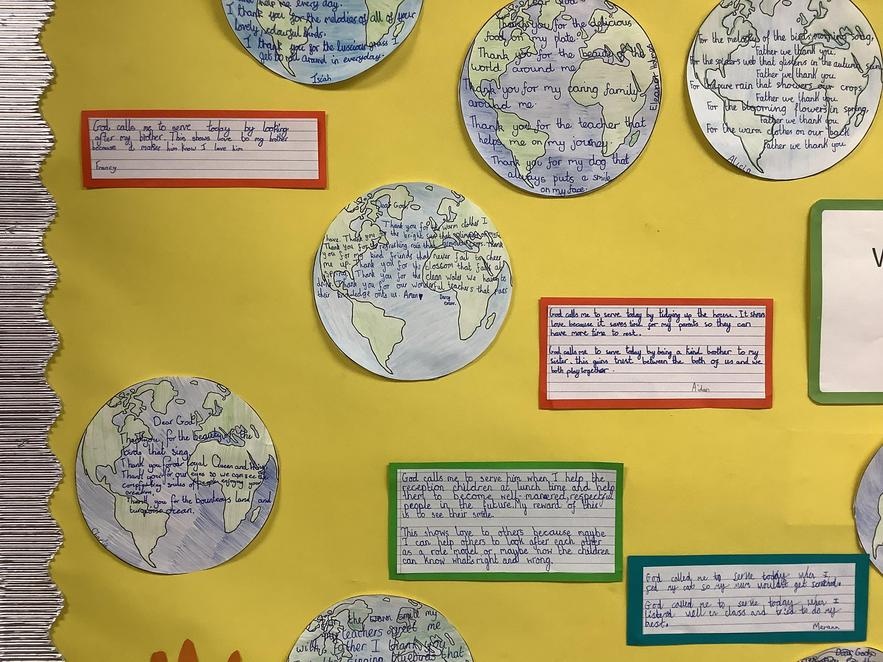 help me every day.
I thank you for the melodies of all of your
lovely colourful birds.
I thank you for the luscious grass I
get to roll around in everyday.
Isiah
Thank you for the delicious
food on my plate.
Thank you for the beauty of the
world around me.
Thank you for my caring family
around me.
Thank you for the teacher that
helps me on my journey.
Thank you for my dog that
always puts a smile
on my face.
Eleanor
For the melodies of the birds morning song,
Father we thank you.
For the spiders web that glistens in the autumn sun,
Father we thank you.
For the pure rain that showers our crops,
Father we thank you.
For the blooming flowers in spring,
Father we thank you.
For the warm clothes on our back
Father we thank you.
Alicia
God calls me to serve today by looking
after my brother. This shows love to my brother
because it makes him know I love him
Francy
Dear God,
Thank you for the warm clothes I
have. Thank you for the bright sun that
Thank you for refreshing rain that Thank
you for my kind friends that never fail to cheer
me up. Thank you for the blossom that falls at
spring. Thank you for the clean water we have to
drink. Thank you for our wonderful teachers that pass
their knowledge onto us. Amen
God calls me to serve today by tidying up the house. It shows
love because it saves time for my parents so they can
have more time to rest.
God calls me to serve today by being a kind brother to my
sister. this gains trust between the both of us and we
both play together.
Aidan
W
Dear God,
Thank you for the beauty of the
birds that sing.
Thank you for a loyal Queen and King.
Thank you for our eyes so we can see all
comforting smiles of people enjoying your
creation.
Thank you for the bounteous land and
turquoise ocean.
God calls me to serve him when I help the
reception children at lunch time and help
them to become well-manered, respectful
people in the future. My reward of this
is to see their smile.
This shows love to others because maybe
I can help others to look after each other
as a role model or maybe how the children
can know whats right and wrong.
God called me to serve today when I
fed my cat so my mum wouldnt get scratched.
God called me to serve today when I
listened well in class and tried to do my
best.
the warm smile my
teachers greet me
with, Father I thank you
bluebirds that
Dear God,